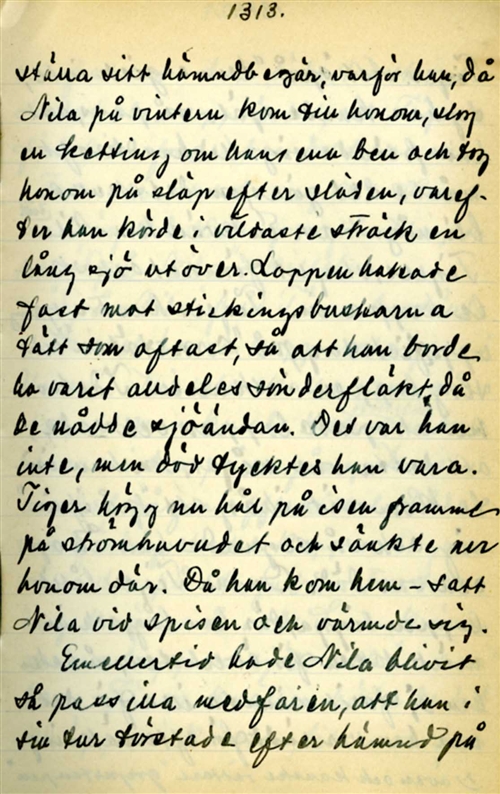 1313.
ställa sitt hämndbegär, varför han, då
Nila på vintern kom till honom, slog
en ketting om hans ena ben och tog
honom på släp efter släden, varef-
ter han körde i vildaste sträck en
lång sjö utöver. Lappen hakade
fast mot stickningsbuskarna
tätt som oftast, så att han borde
ha varit alldeles sönderfläkt, då
de nådde sjöändan. Det var han
inte, men död tycktes han vara.
Tiger högg nu hål på isen framme
på strömhuvudet och sänkte ner
honom där. Då han kom hem – satt
Nila vid spisen och värmde sig.
Emellertid hade Nila blivit
så pass illa medfaren, att han i
sin tur törstade efter hämnd på